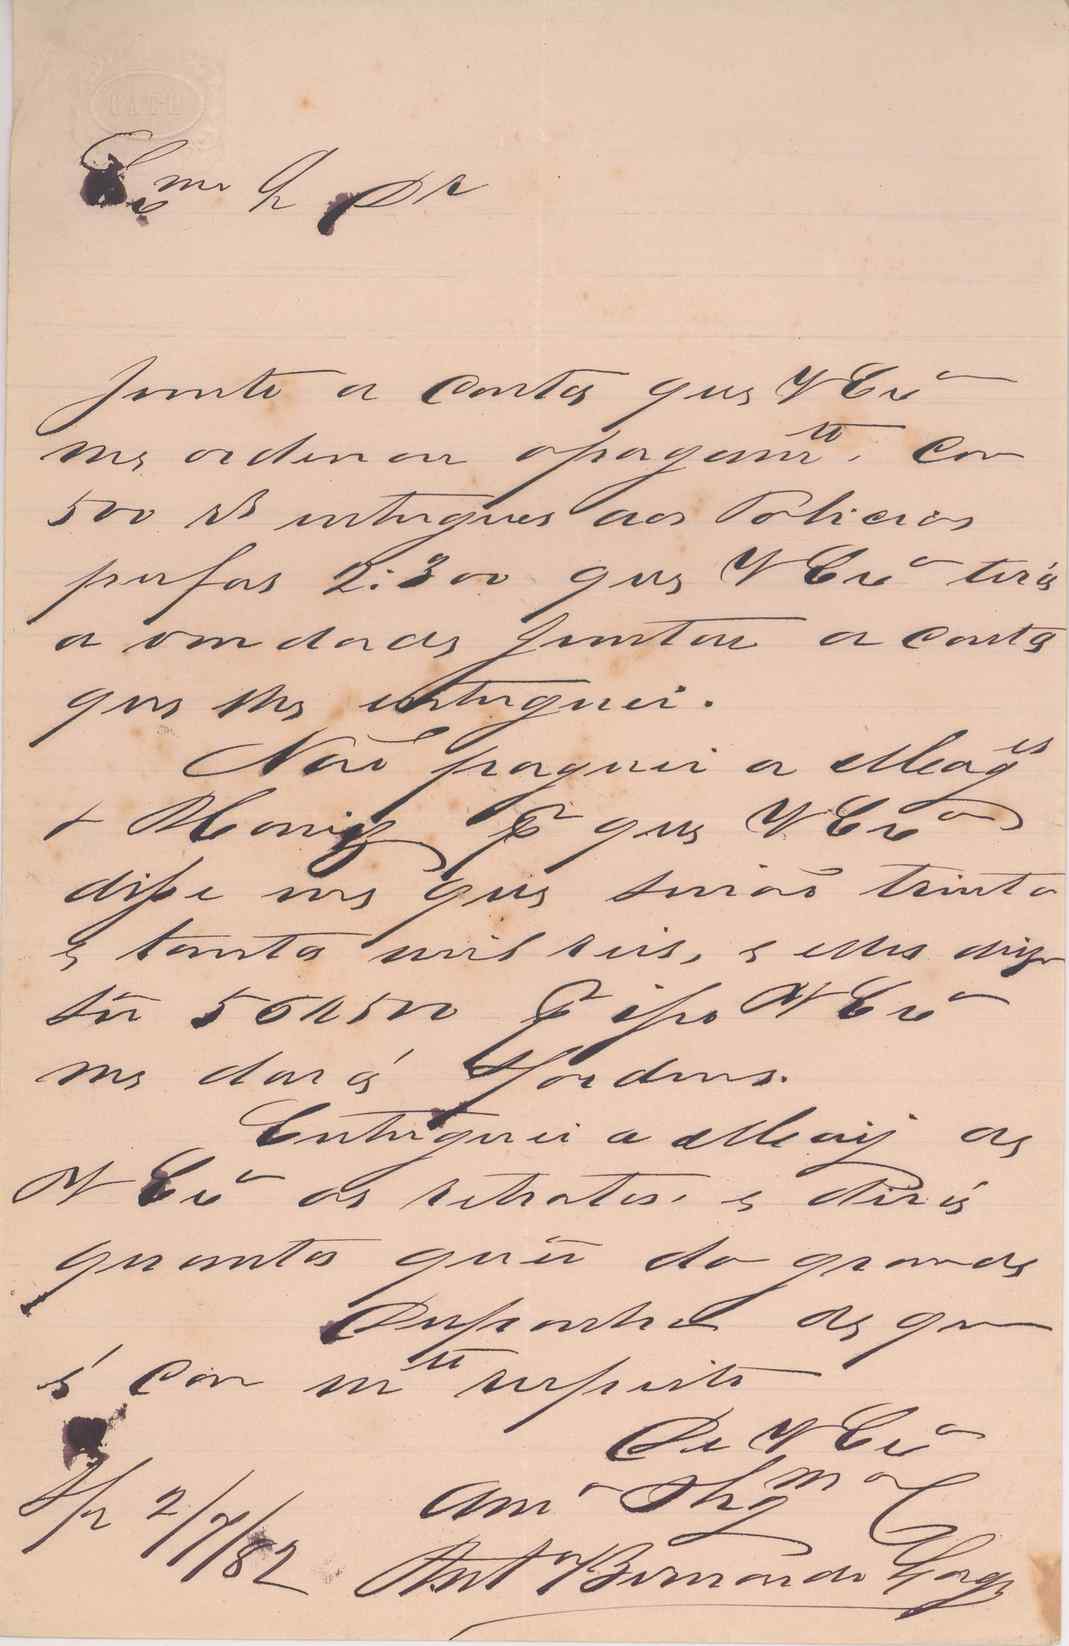 Exmo Sr Dr
Junto a conta que V Exa
me ordenou o pagamto, com
500 rs entregues aos Policias
perfas 2:300 que V Exa terá
a vondade juntar a conta
que lhe entreguei.
Não paguei a
& que V Exa
disse me que serião trinta
e tanto mil reis, e elles diz
são 56$500 Pr isso V Exa
me dará Hordens.
Entreguei a de
V Exa os retratos, e dirá
quantos quer do grande
Disponha de qm
é com mto respeito
De V Exa
Amo Obrgmo Co
2/7/82 Anto Bernardo